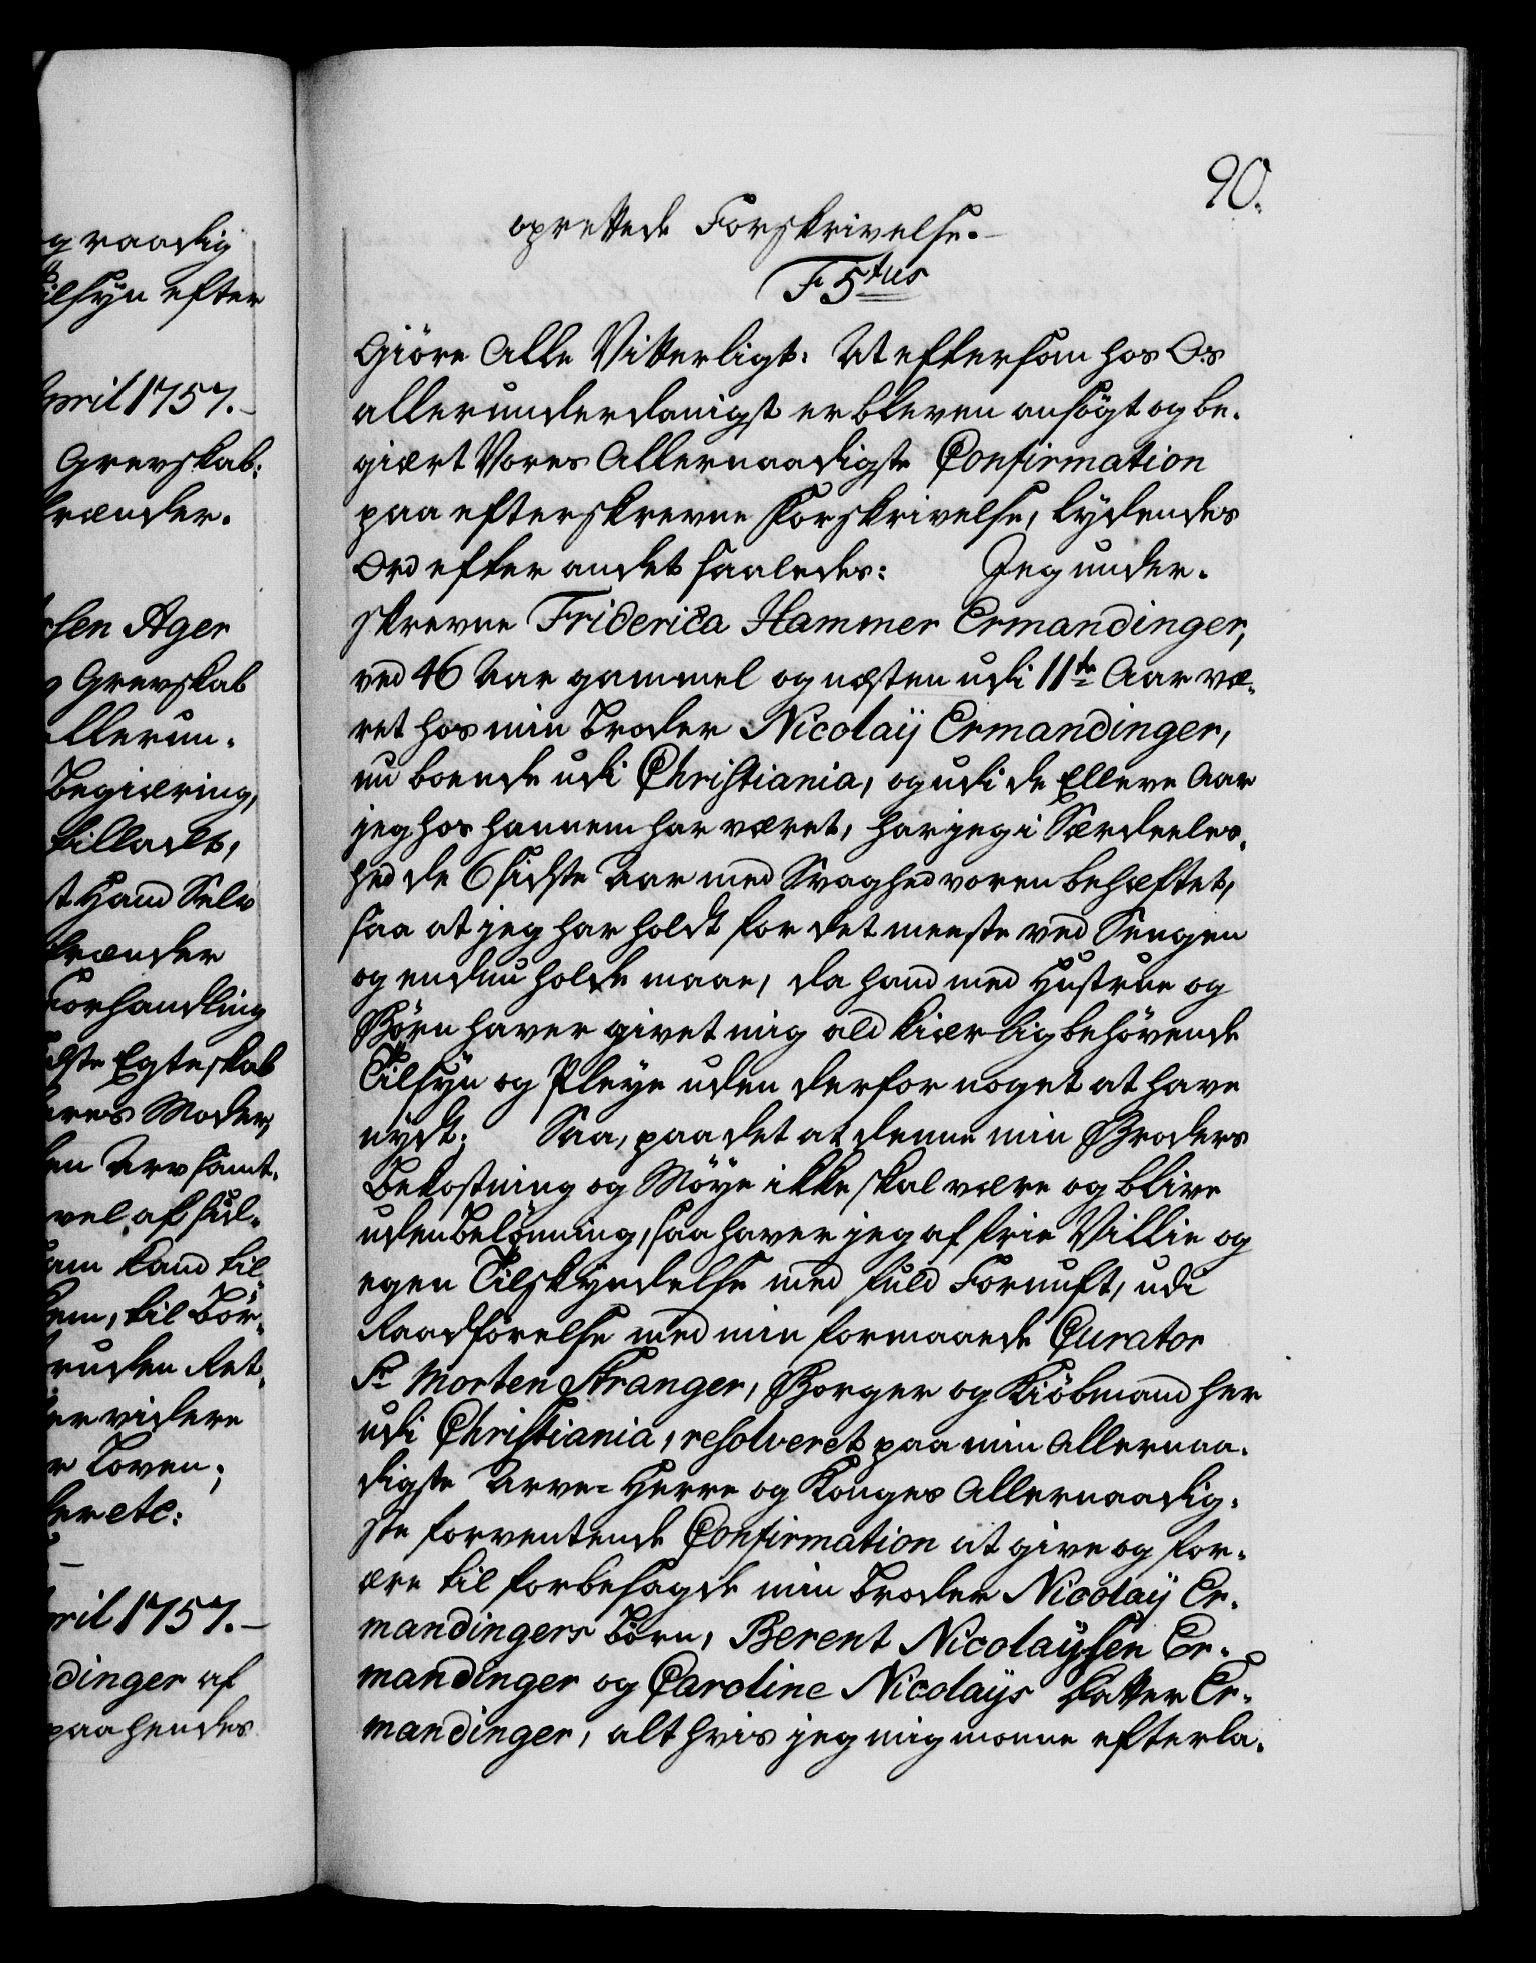 90.
oprettede Forskrivelse.
F 5tus
Giöre Alle Vitterligt: At eftersom hos Os
allerunderdanigst er bleven ansögt og be-
giært Vores Allernaadigste Confirmation
paa efterskrevne Forskrivelse, lydendes
Ord efter andet saaledes: Jeg under-
skrevne Friderica Hammer Ermandinger,
ved 46 Aar gammel og næsten udi 11te Aar væ-
ret hos min Broder Nicolaÿ Ermandinger,
nu boende udi Christiania, og udi de Elleve Aar
jeg hos hannem har været, har jeg i Særdeeles-
hed de 6 sidste Aar med Svaghed voren behæftet,
saa at jeg har holdt for det meeste ved Sengen
og endnu holde maae, da hand med Hustrue og
Börn haver givet mig ald kiærlig behövende
Tilsÿn og Pleÿe uden derfor noget at have
nÿdt; Saa, paa det at denne min Broders
Bekostning og Möÿe ikke skal være og blive
uden Belönning, saa haver jeg af frie Villie og
egen Tilskÿndelse med fuld Fornuft, udi
Raadförelse med min formaaende Curator
Sr Morten Stranger, Borger og Kiöbmand her
udi Christiania, resolveret paa min Allernaa-
digste Arve-Herre og Konges Allernaadig-
ste forventende Confirmation at give og for-
ære til forbesagde min Broder Nicolaÿ Er-
mandingers Börn, Berent Nicolaÿsen Er-
mandinger og Caroline Nicolaÿs Datter Er-
mandinger, alt hvis jeg mig monne efterla-
g raadig
ilsÿn efter
April 1757.
Grevskab:
rænder.
sen Ager
Grevskab
llerun-
Begiæring,
tilladt,
st Hand Selv
rænder
Forhandling
dste Egteskab
eres Moder,
en Arv samt-
vel af fuld-
am kand til-
em, til Bör-
ruden Ret-
er videre
r Loven;
er etc:
April 1757.
dinger af
paa hendes